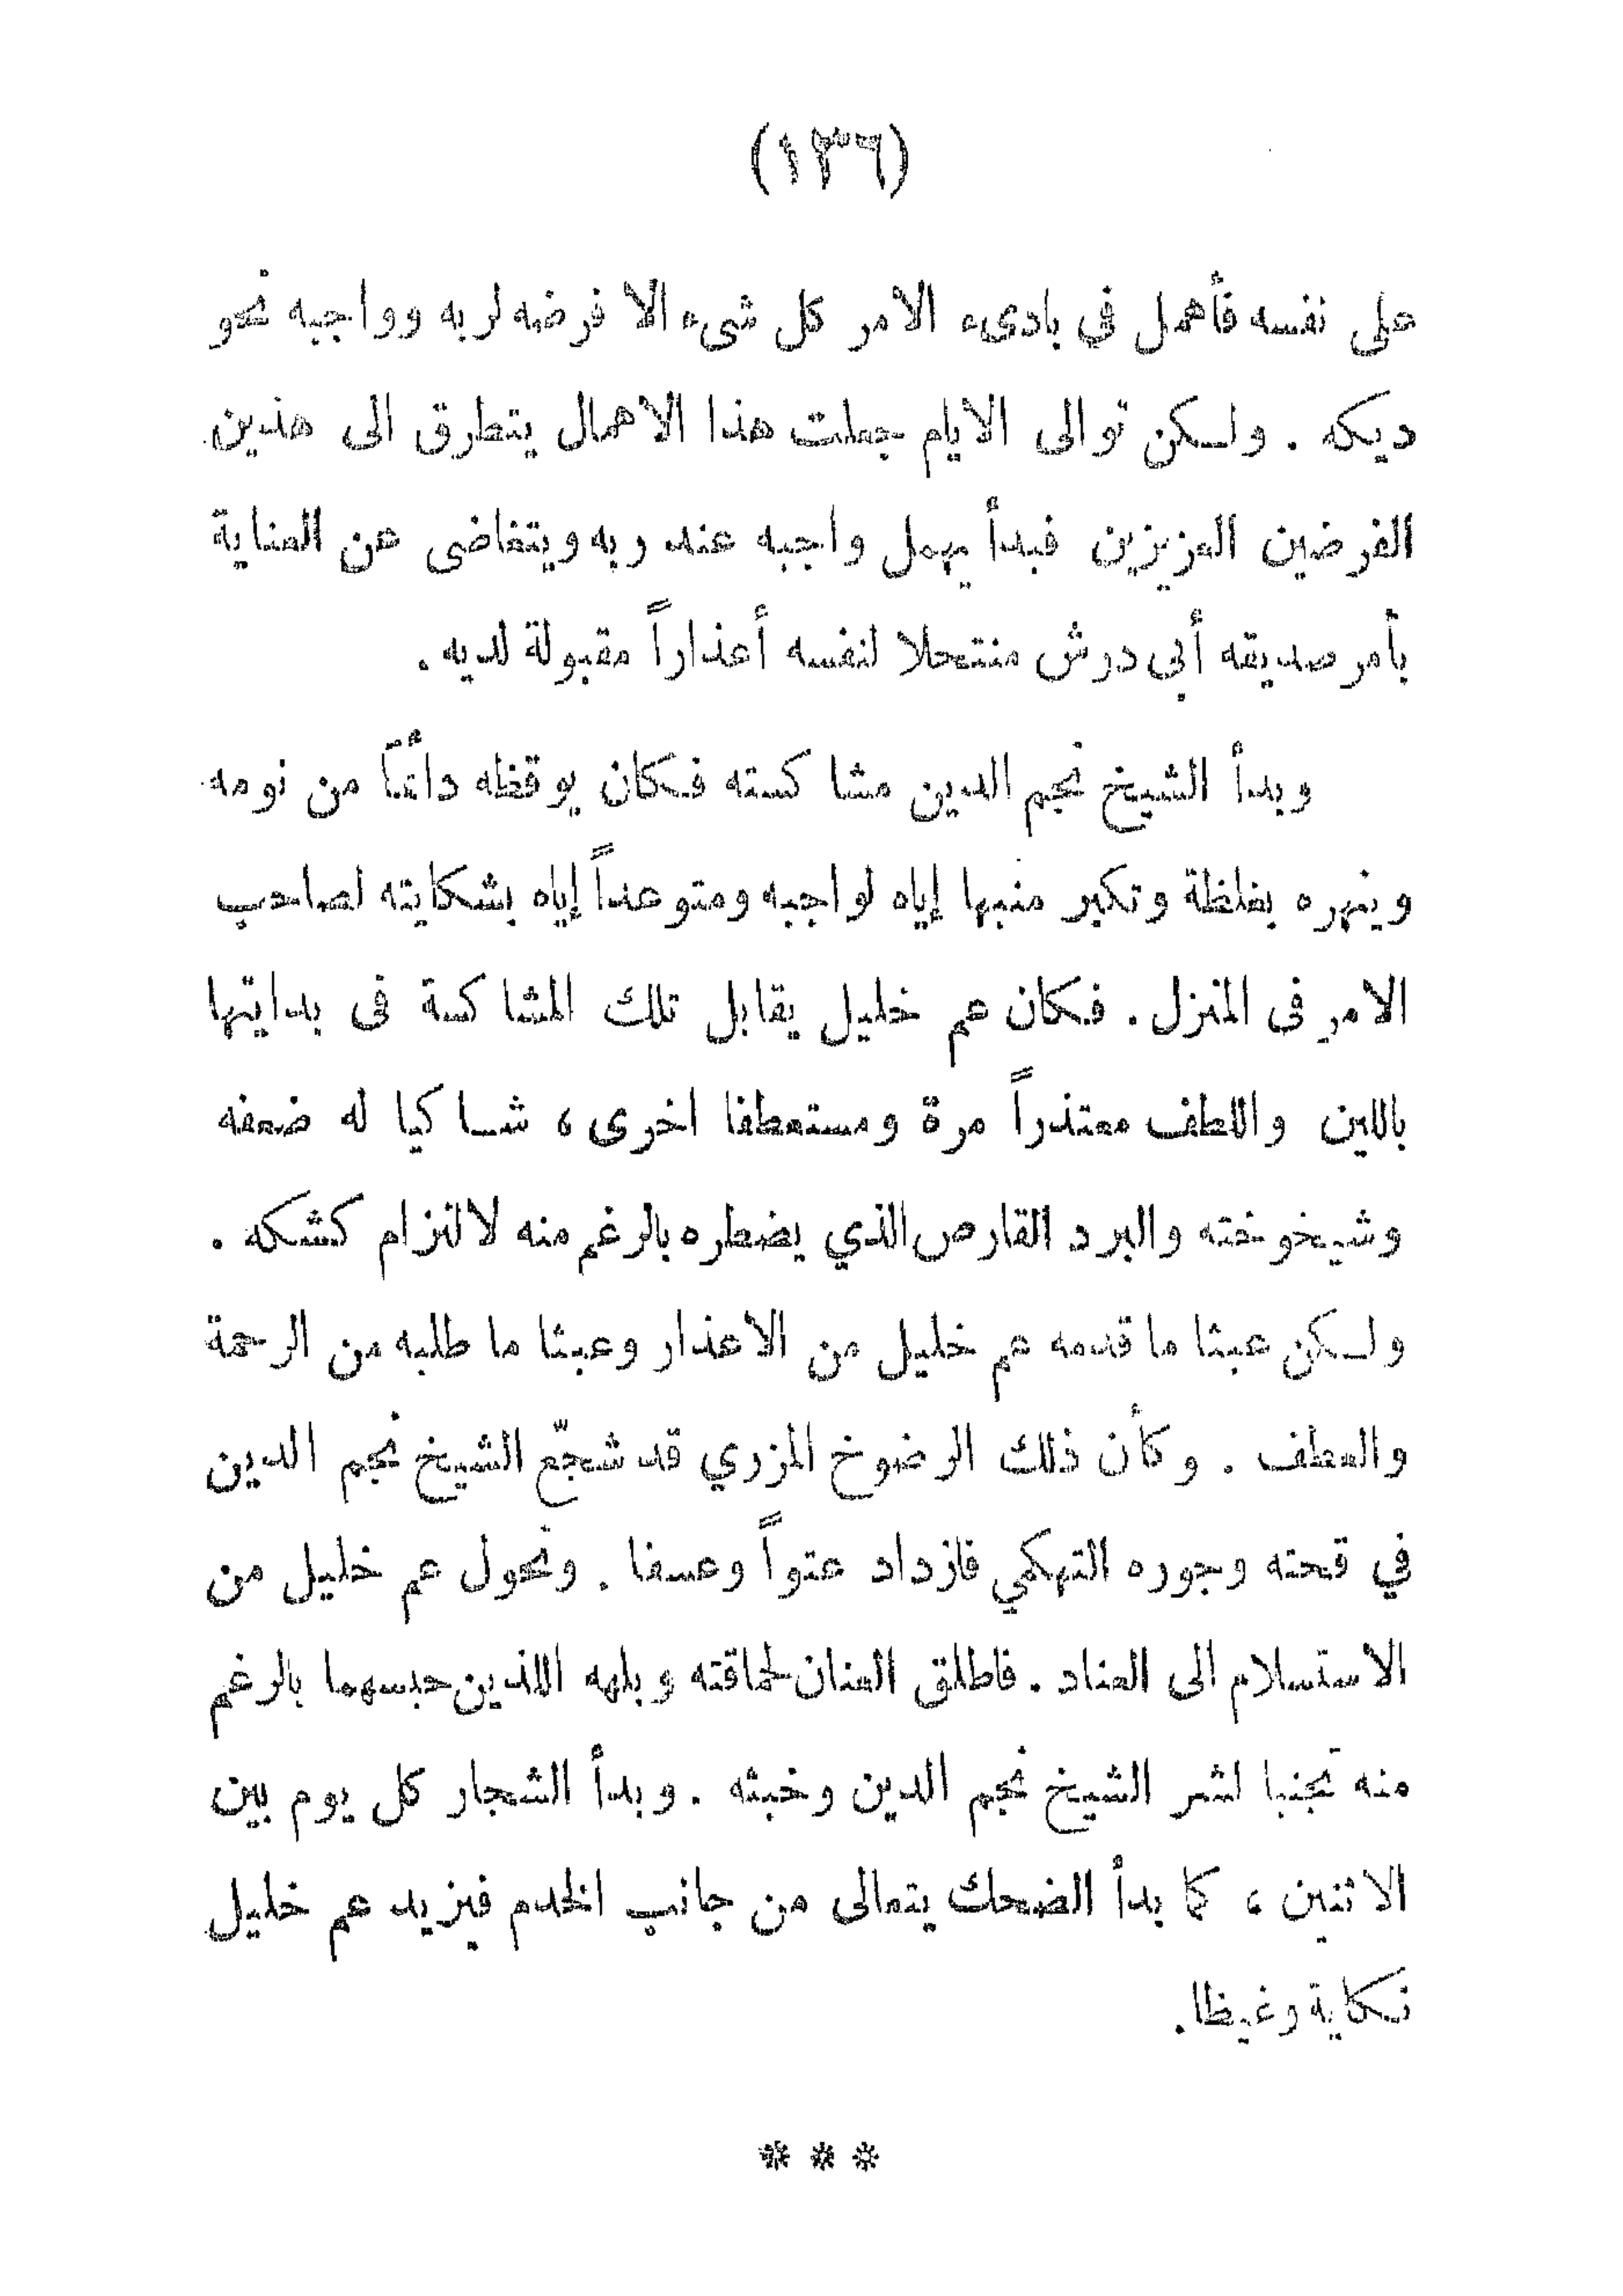 (١٣٦)
على نفسه فأهمل في بادىء الامر كل شىء الا فرضه لربه وواجبه نحو
ديكه . ولكن توالى الايام جعلت هذا الاهمال يتطرق الى هذين
الفرضين العزيزين فبدأ يهمل واجبه عند ربه ويتغاضى عن العناية
بأمر صديقه أبى درش منتحلا لنفسه أعذاراً مقبولة لديه .
وبدأ الشيخ نجم الدين مشاكسته فكان يوقظه دائماً من نومه
وينهره بغلظة وتكبر منبها إياه لواجبه ومتوعداً إياه بشكايته لصاحب
الامر فى المنزل . فكان عم خليل يقابل تلك المشاكسة فى بدايتها
باللين واللطف معتذراً مرة ومستعطفا اخرى ، شاكيا له ضعفه
وشيخوخته والبرد القارص الذي يضطره بالرغم منه لالتزام كشكه .
ولكن عبثا ما قدمه عم خليل من الاعذار وعبثا ما طلبه من الرحمة
والعطف . وكأن ذلك الرضوخ المزري قد شجّع الشيخ نجم الدين
في قحته وجوره التهكمي فازداد عتواً وعسفا . وتحول عم خليل من
الاستسلام الى العناد . فاطلق العنان لحماقته وبلهه اللذين حبسهما بالرغم
منه تجنبا لشر الشيخ نجم الدين وخبثه . وبدأ الشجار كل يوم بين
الاثنين ، كما بدأ الضحك يتعالى من جانب الخدم فيزيد عم خليل
نكاية وغيظا.
* * *